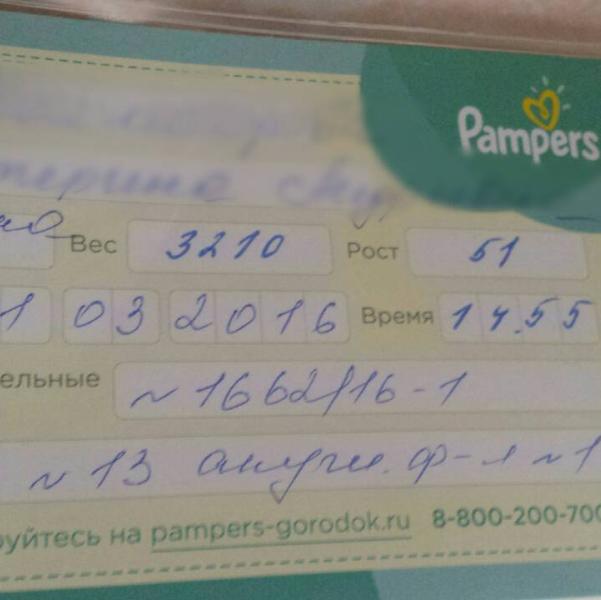 Pampers
Вес 3210 Рост 51
1 03 2016 Время 14.55
ельные ~ 1662/16-1
~ 13 ф-л ~ 1
руйтесь на pampers-gorodok.ru 8-800-200-700